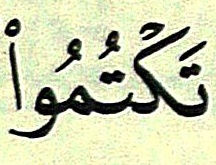 تَكۡتُمُواْ